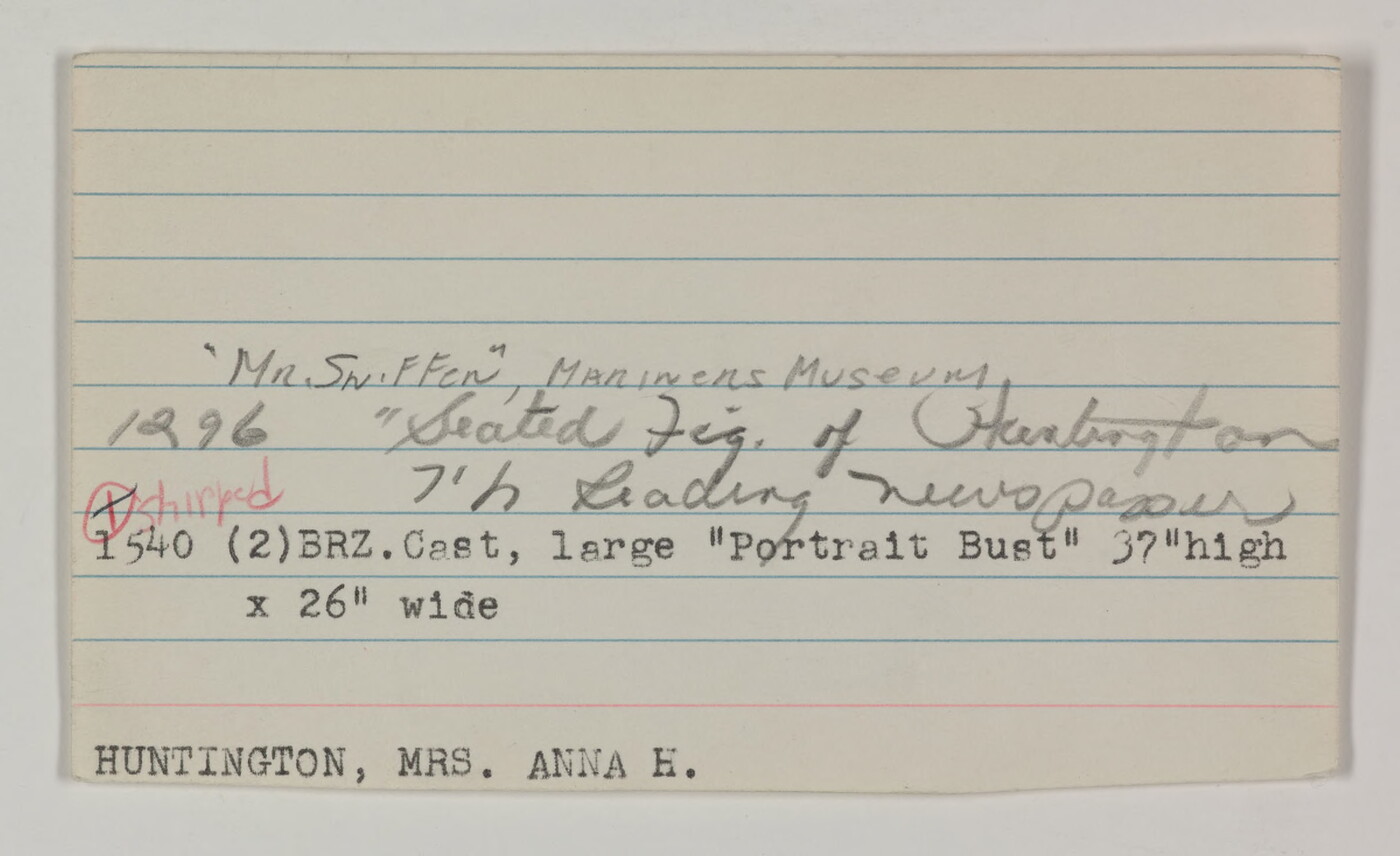 "Mr. Sniffen", Mariners Museum
1296 "Seated Fig. of Huntington
7'h Reading newspaper
① shipped
1540 (2)BRZ.Cast, large "Portrait Bust" 37"high
x 26" wide
HUNTINGTON, MRS. ANNA H.